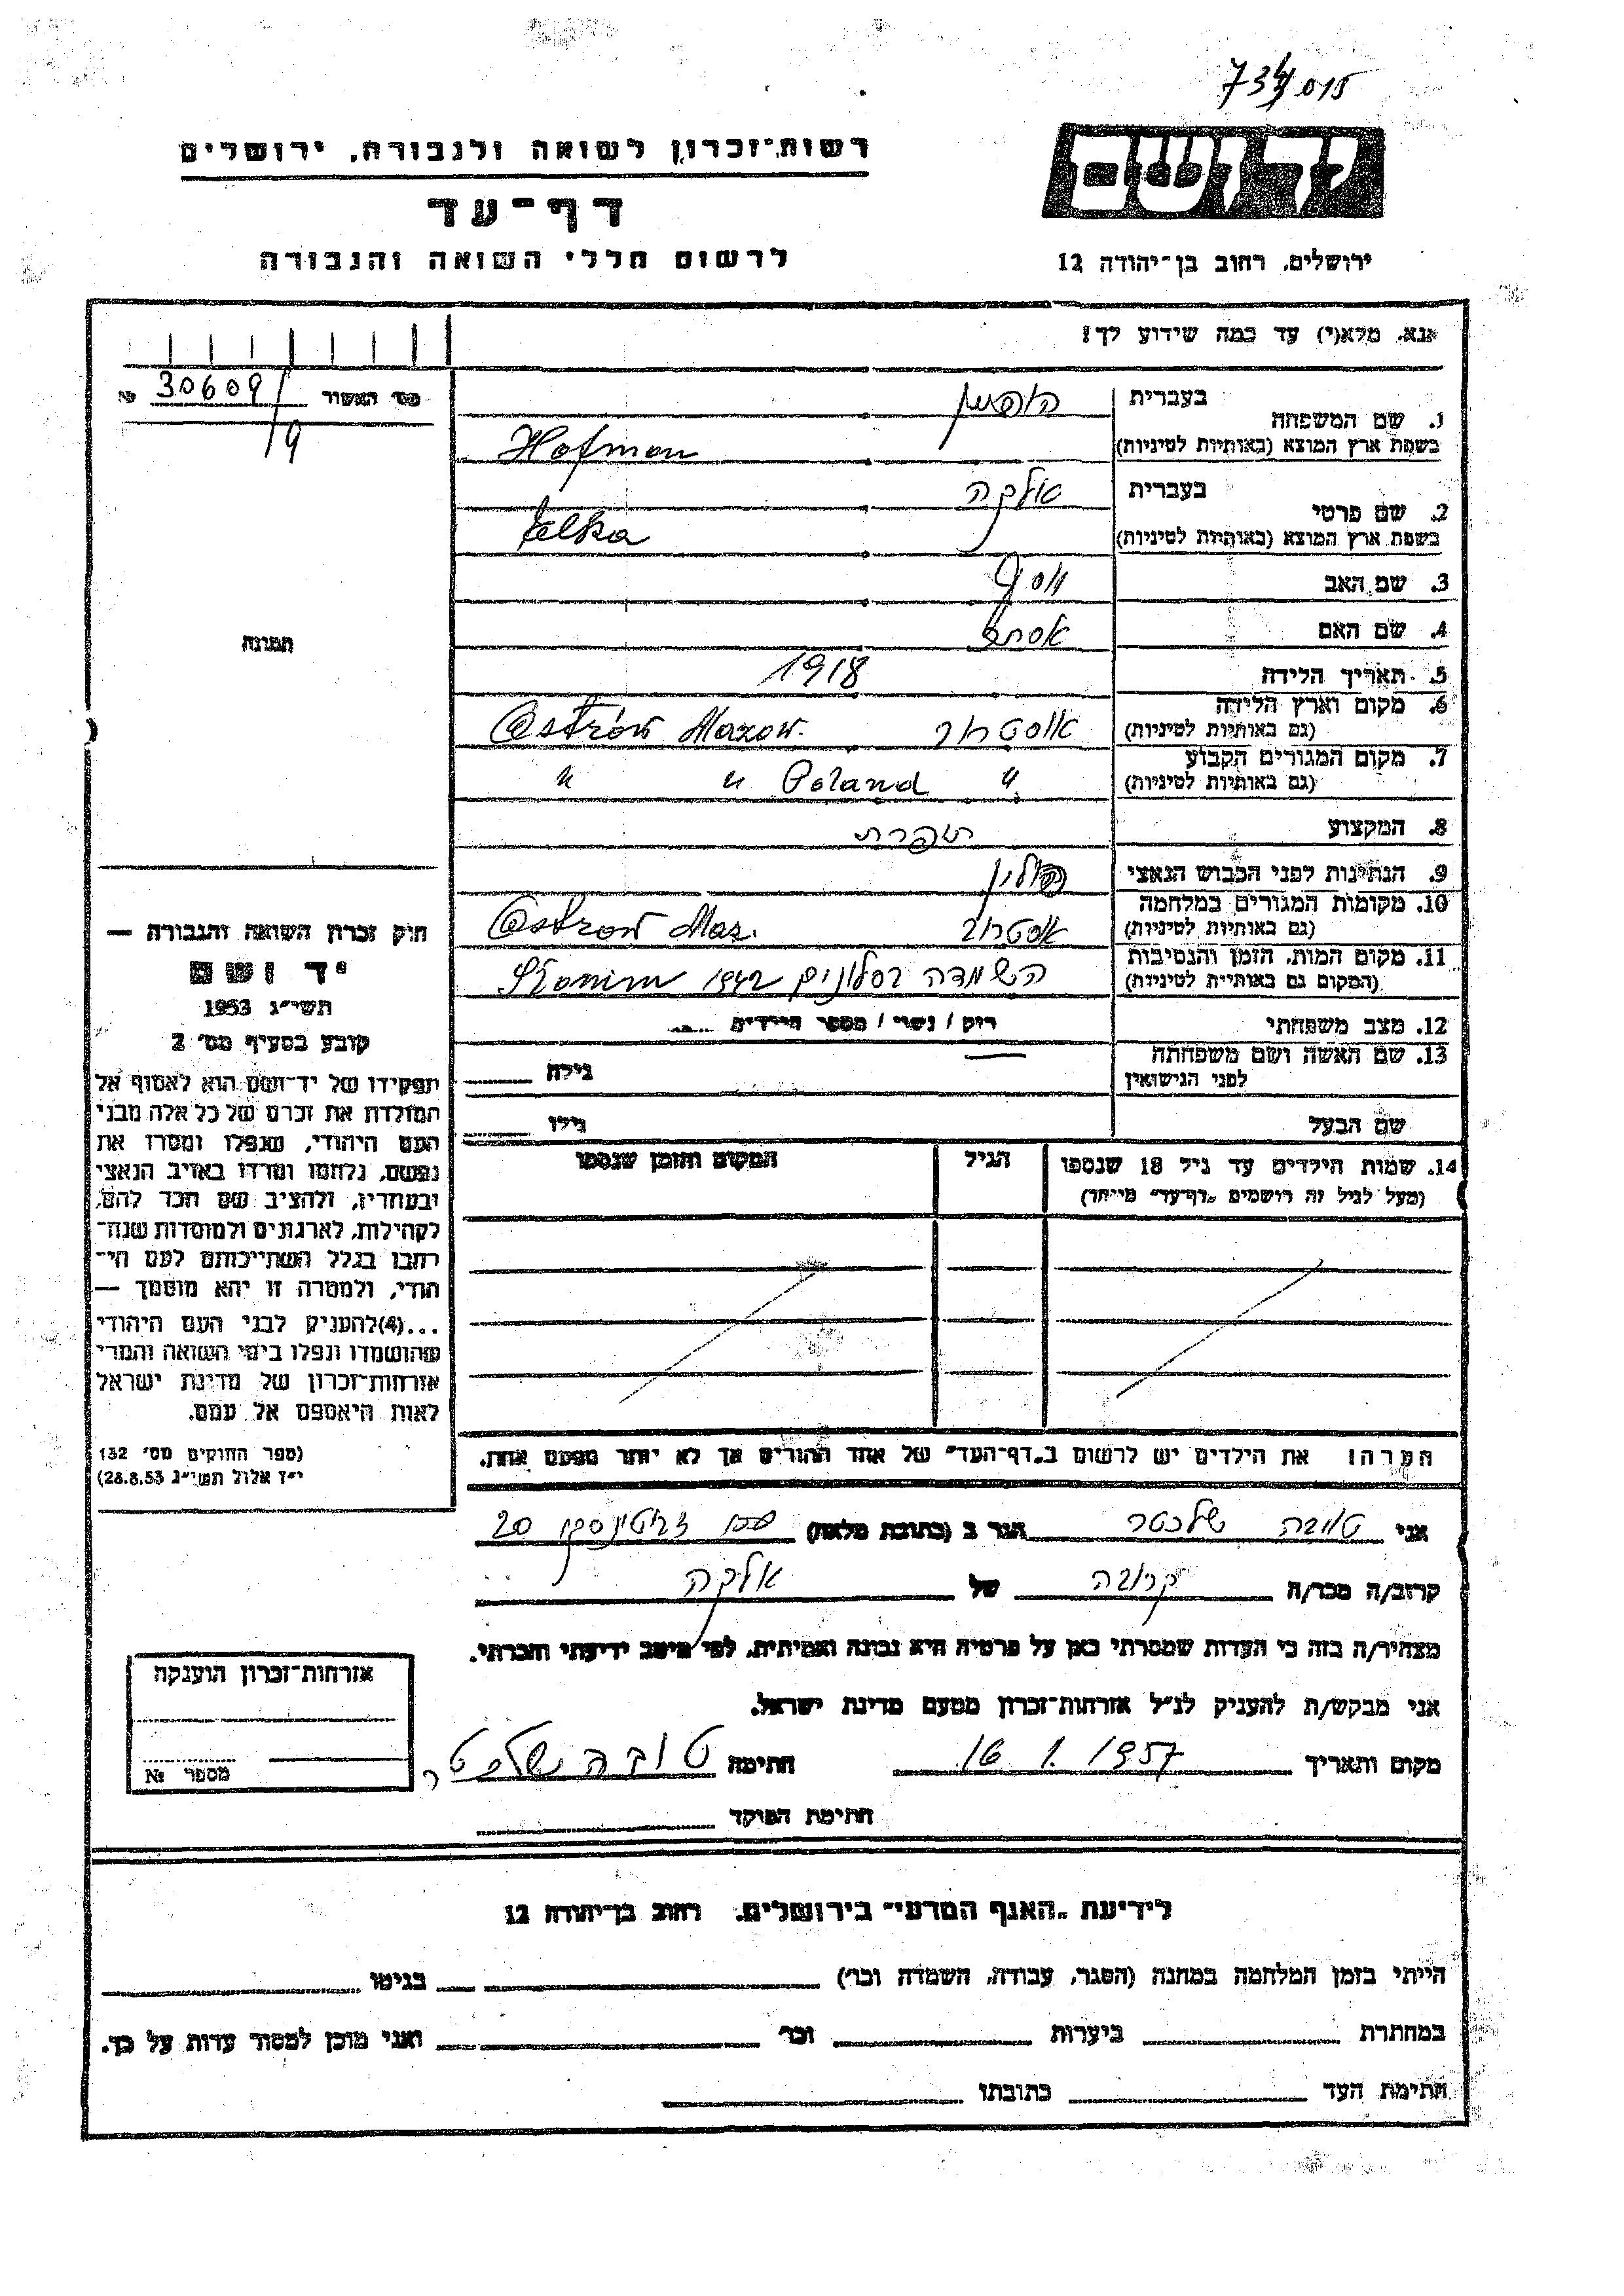 734015
רשות־זכרון לשואה ולגבורה, ירושלים
דף־עד
לרשום חללי השואה והגבורה
ידושם
ירושלים, רחוב בן־יהודה 12
אנא, מלא(י) עד כמה שידוע לך!
מס' האשור 30609/ №
19
1. שם המשפחה
בעברית הופמן
בשפת ארץ המוצא (באותיות לטיניות) Hofman
2. שם פרטי
בעברית אלקה
בשפת ארץ המוצא (באותיות לטיניות) Elka
3. שם האב יוסף
4. שם האם אסתר
5. תאריך הלידה 1918
6. מקום וארץ הלידה
(גם באותיות לטיניות) אוסטרוב Ostrów Mazow.
7. מקום המגורים הקבוע
(גם באותיות לטיניות) " Poland " "
8. המקצוע תופרת
9. הנתינות לפני הכבוש הנאצי פולין
10. מקומות המגורים במלחמה
(גם באותיות לטיניות) אוסטרוב Ostrow Maz.
11. מקום המות, הזמן והנסיבות
(המקום גם באותיות לטיניות) השמדה בסלונים 1942 Słonim
12. מצב משפחתי רוק / נשוי / מספר הילדים
13. שם האשה ושם משפחתה
לפני הנישואין
גילה
שם הבעל גילו
14. שמות הילדים עד גיל 18 שנספו
(מעל לגיל זה רושמים „דף־עד" מיוחד)
הגיל
המקום והזמן שנספו
הערה: את הילדים יש לרשום ב„דף־העד" של אחד ההורים אך לא יותר מפעם אחת.
תמונה
חוק זכרון השואה והגבורה —
יד ושם
תשי"ג 1953
קובע בסעיף מס' 2
תפקידו של יד־ושם הוא לאסוף אל
המולדת את זכרם של כל אלה מבני
העם היהודי, שנפלו ומסרו את
נפשם, נלחמו ומרדו באויב הנאצי
ובעוזריו, ולהציב שם וזכר להם,
לקהילות, לארגונים ולמוסדות שנח־
רבו בגלל השתייכותם לעם הי־
הודי, ולמטרה זו יהא מוסמך —
...(4)להעניק לבני העם היהודי
שהושמדו ונפלו בימי השואה והמרי
אזרחות־זכרון של מדינת ישראל
לאות היאספם אל עמם.
(ספר החוקים מס' 132
י"ז אלול תשי"ג 28.8.53)
אני טובה שלכטר הגר ב (כתובת מלאה) זבוטינסקי 20
קרוב/ה מכר/ה קרובה של אלקה
מצהיר/ה בזה כי העדות שמסרתי כאן על פרטיה היא נכונה ואמיתית, לפי מיטב ידיעתי והכרתי.
אני מבקש/ת להעניק לנ"ל אזרחות־זכרון מטעם מדינת ישראל.
מקום ותאריך 16 1. 1957 חתימה טובה שלכטר
חתימת הפוקד
אזרחות־זכרון הוענקה
מספר №
לידיעת „האגף המדעי" בירושלים, רחוב בן־יהודה 12
הייתי בזמן המלחמה במחנה (הסגר, עבודה, השמדה וכו') בגיטו
במחתרת ביערות וכו' ואני מוכן למסור עדות על כך.
חתימת העד כתובתו